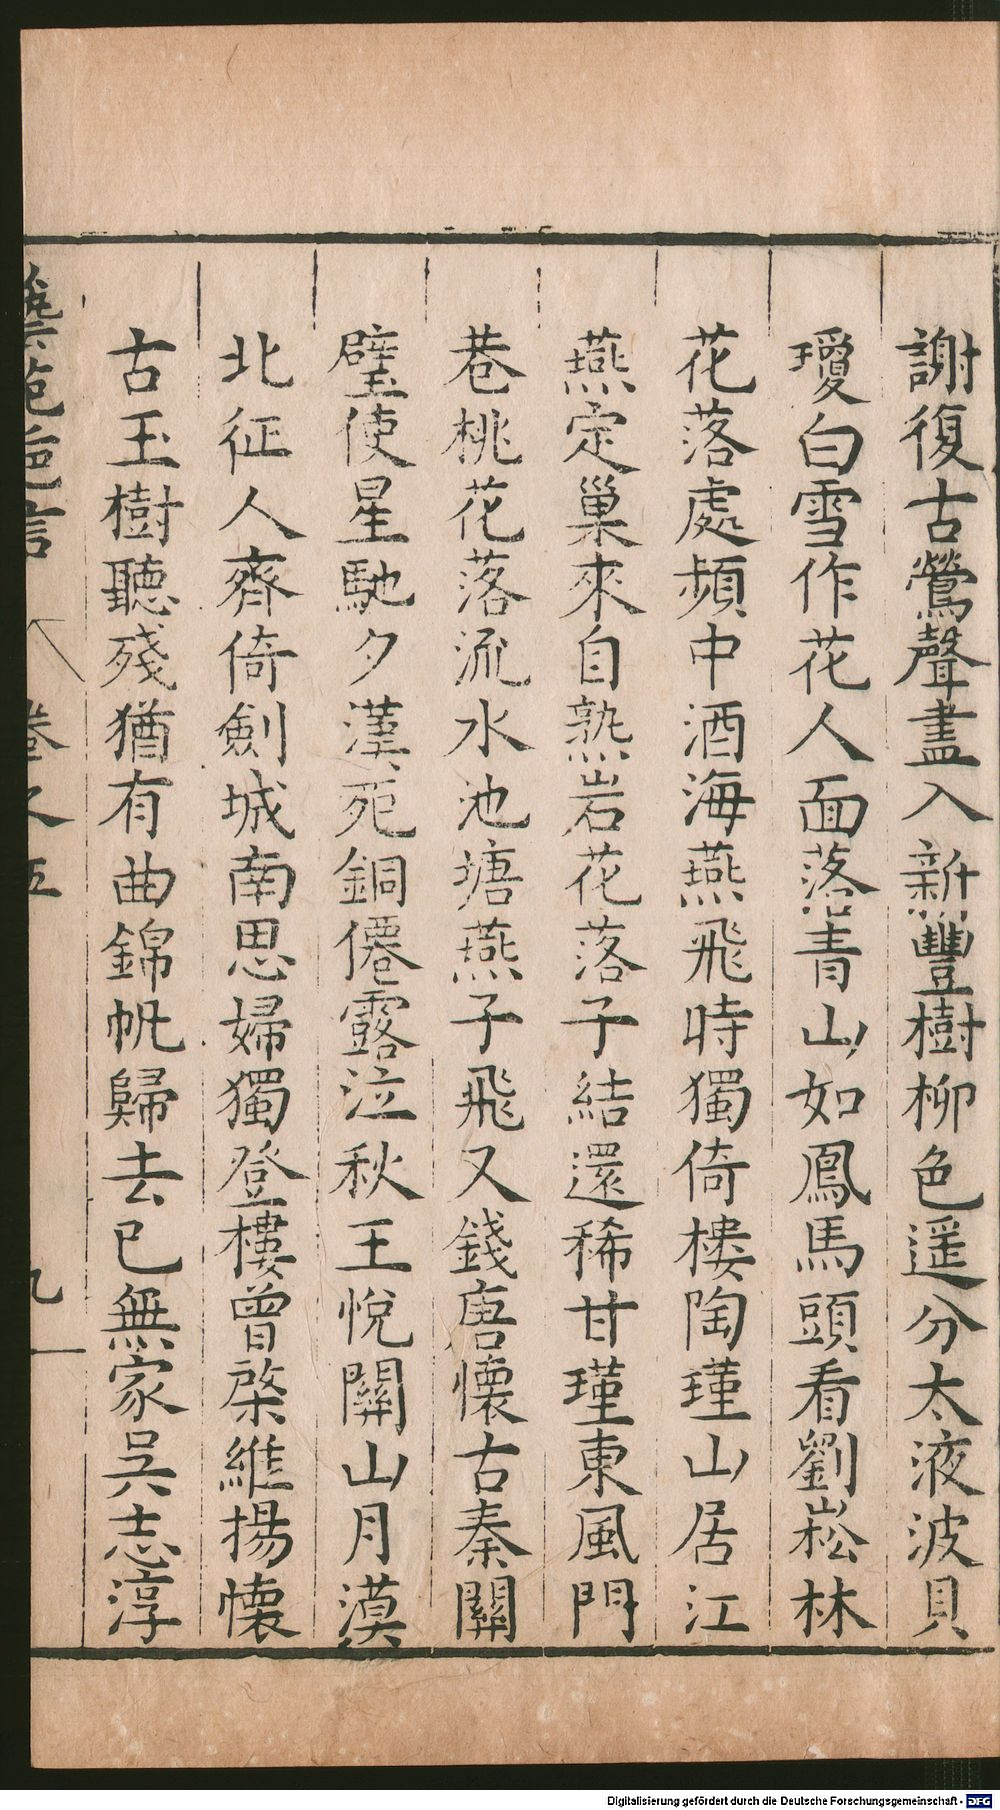 謝復古鶯聲盡入新豐樹柳色遥分太液波貝
瓊白雪作花人面落青山如鳳馬頭看劉崧林
花落處頻中酒海燕飛時獨倚樓陶瑾山居江
燕定巢來自熟岩花落子結還稀甘瑾東風門
巷桃花落流水池塘燕子飛又錢唐懷古秦關
璧使星馳夕漢苑銅僊露泣秋王悅關山月漠
北征人齊倚劍城南思婦獨登樓曾棨維揚懷
古玉樹聽殘猶有曲錦帆歸去已無家吳志淳
卷之五
九
Digitalisierung gefördert durch die Deutsche Forschungsgemeinschaft - DFG